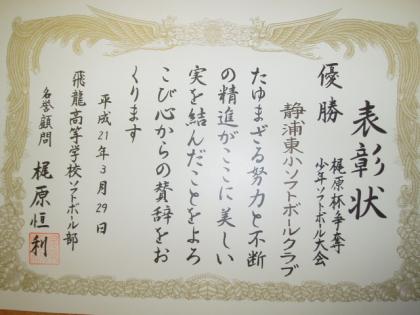 表彰状
梶原杯争奪
少年ソフトボール大会
優勝
静浦東小ソフトボールクラブ
たゆまざる努力と不断
の精進がここに美しい
実を結んだことをよろ
こび心からの賛辞をお
くります
平成21年3月29日
飛龍高等学校ソフトボール部
名誉顧問 梶原恒利